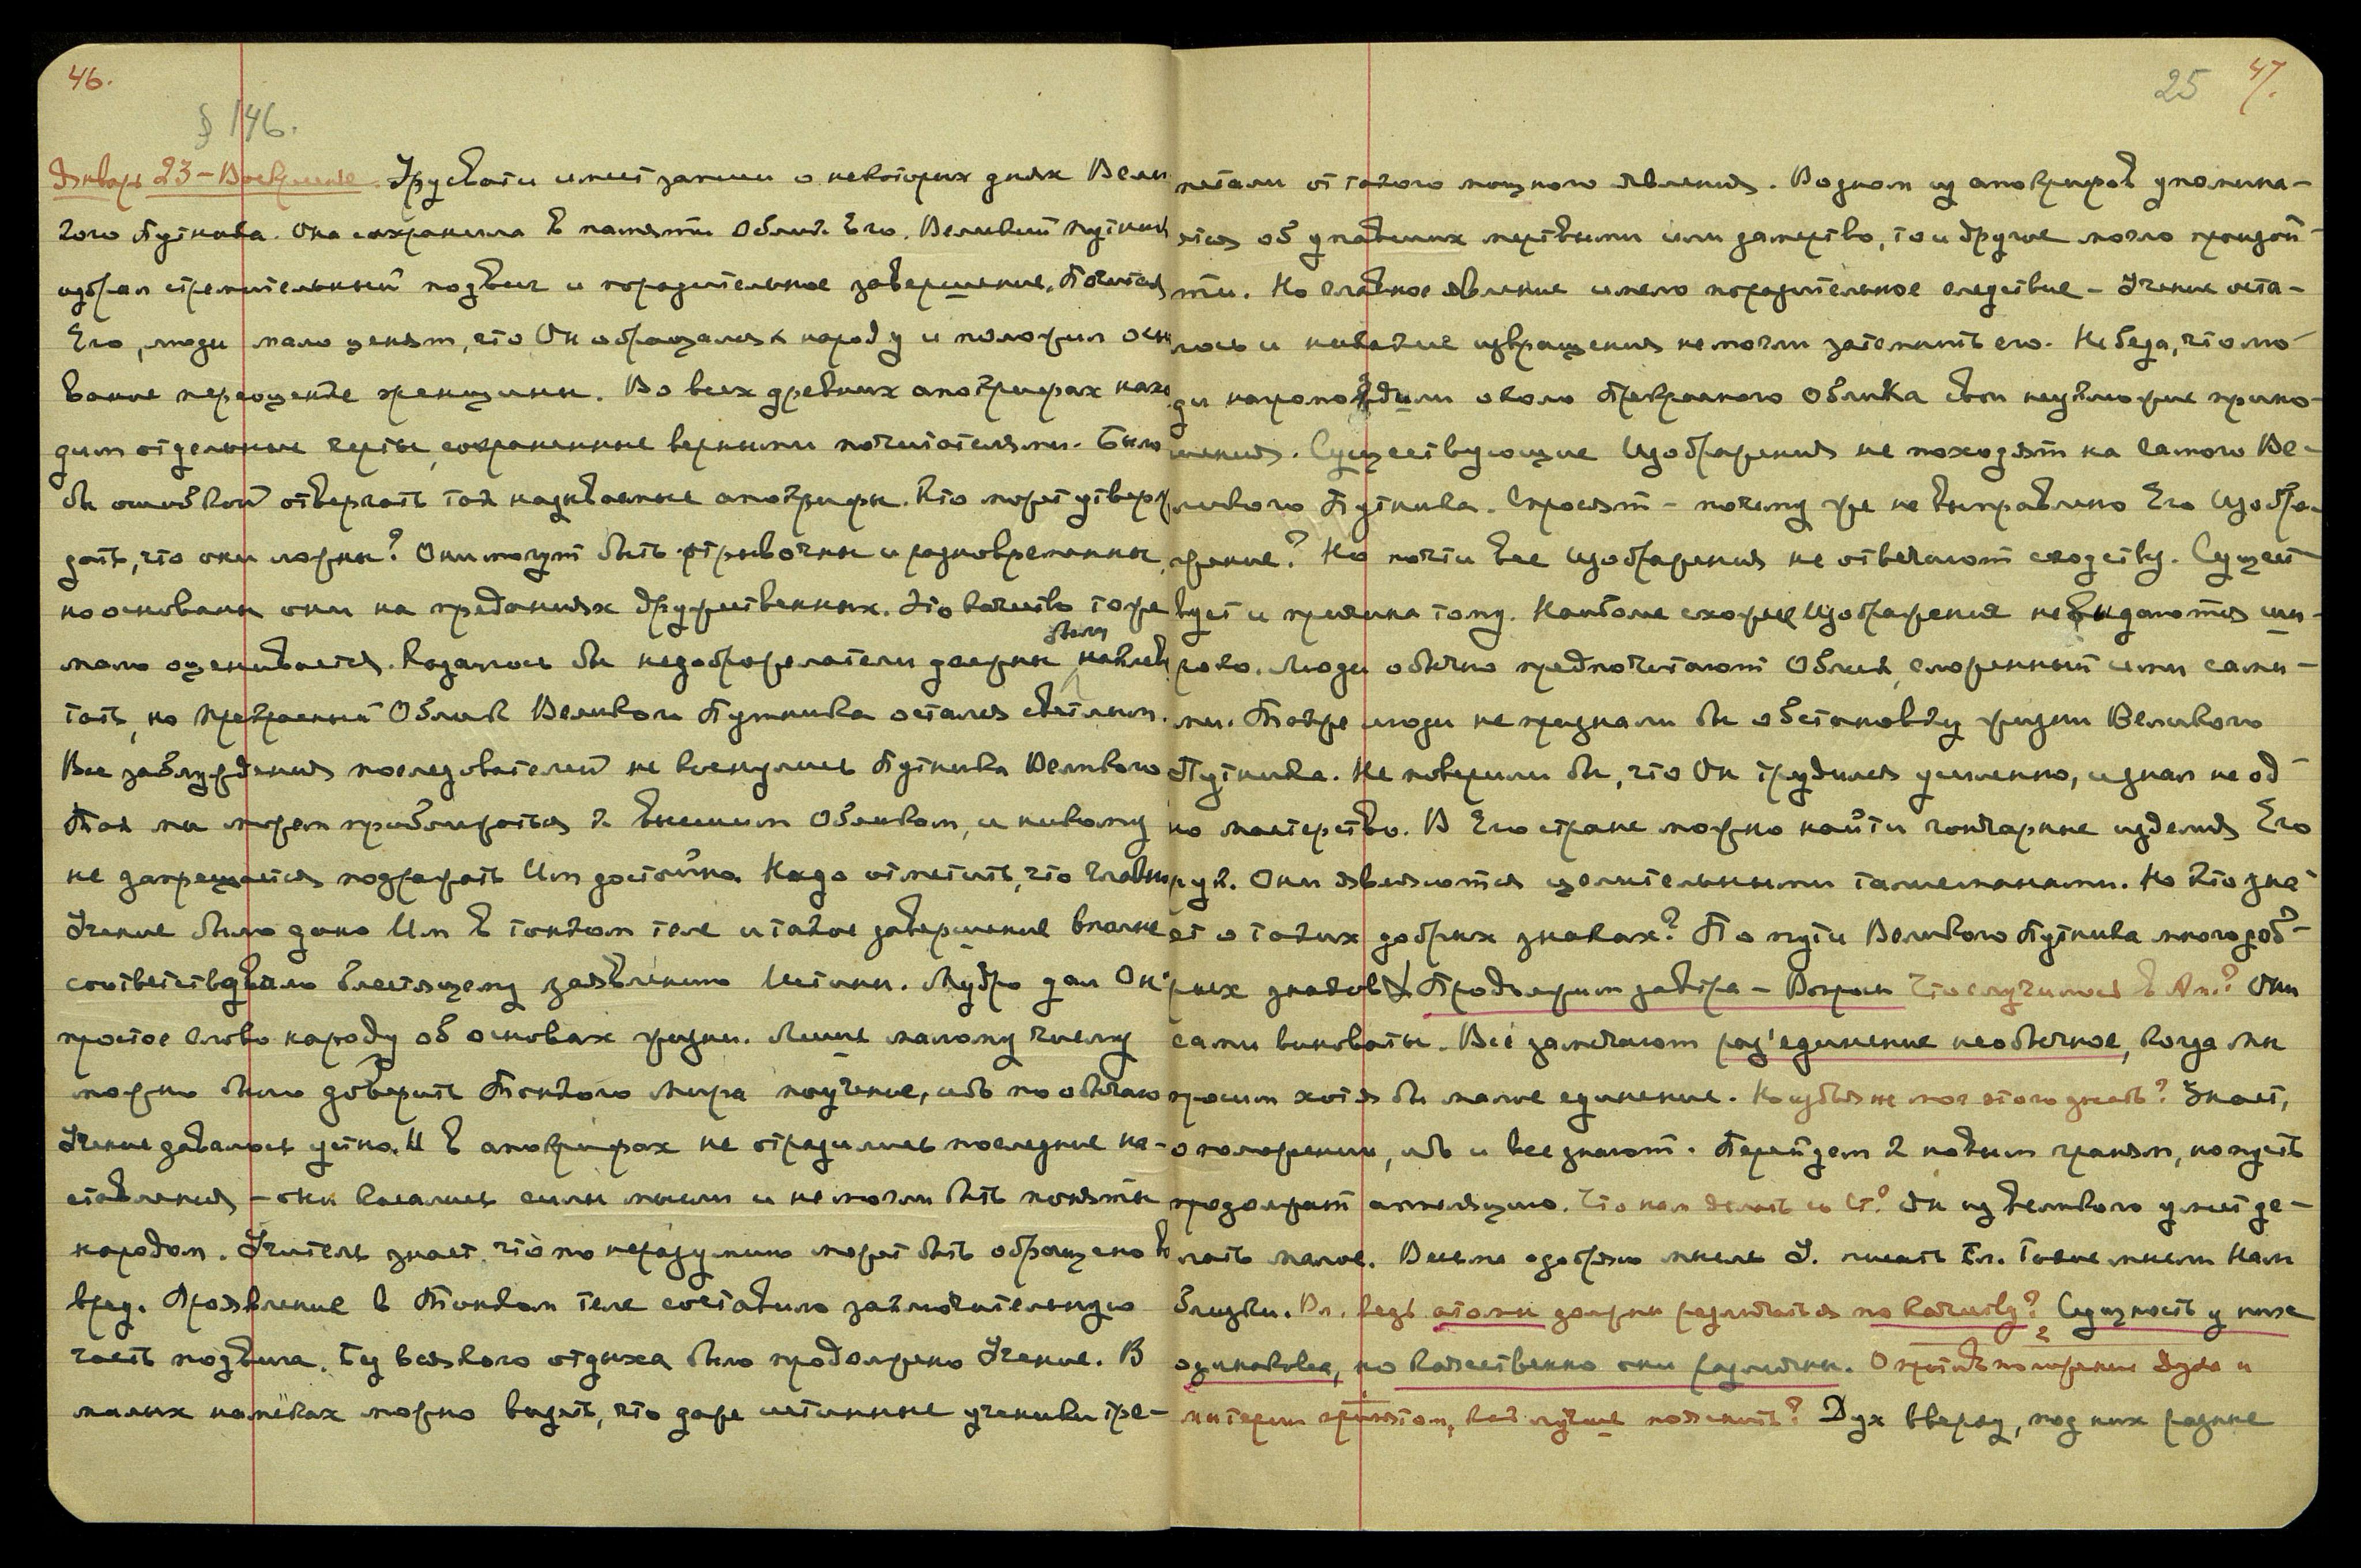 46.
§ 146.
Январь 23 – Воскресенье. Урусвати имеет записи о некоторых днях Вели
кого Путника. Она сохранила в памяти Облик Его. Великий путник
избрал стремительный подвиг и поразительное завершение. Почитая
Его, люди мало ценят, что Он обращался к народу и положил осн
вание переоценке женщины. Во всех древних апокрифах нахо
дим отдельные черты, сохраненные верными почитателями. Было
бы ошибкой отвергать так называемые апокрифы. Кто может утверж
дать, что они ложны? Они могут быть отрывочны и разновременны,
но основаны они на преданиях дружественных. Это качество тоже
мало оценивается. Казалось бы недоброжелатели должны были наклеве
тать, но Прекрасный Облик Великого Путника остался светлым.
Все заблуждения последователей не коснулись Путника Великого
Так мы можем приближаться к высшим Обликам, и никому
не запрещается подражать Им достойно. Надо отметить, что Главное
Учение было дано Им в тонком теле и такое завершение вполне
соответствовало блестящему заявлению Истины. Мудро дал Он
простое слово народу об основах жизни. Лишь малому числу
можно было доверить Тонкого Мира поучение, ибо по обычаю
Учение давалось устно. И в апокрифах не отразились последние на-
ставления – они касались силы мысли и не могли быть поняты
народом. Учитель знает, что по неразумию может быть обращено во
вред. Проявление в Тонком теле составило заключительную
часть подвига. Без всякого отдыха было продолжено Учение. В
малых намёках можно видеть, что даже истинные ученики тре-
25 47.
петали от такого мощного явления. В одном из апокрифов упомина-
ется об упавших мертвыми или замертво, то и другое могло произой-
ти. Но главное явление имело поразительное следствие – Учение оста-
лось и никакие извращения не могли затемнить его. Не беда, что лю-
ди нагромоздили около Прекрасного Облика свои неуклюжие прино-
шения. Существующие Изображения не походят на самого Ве-
ликого Путника. Спросят – почему же не выправлено Его Изобра-
жение? Но почти все изображения не отвечают сходству. Сущест-
вует и причина тому. Наиболее схожие Изображения не выдаются ши-
роко. Люди обычно предпочитают Облик, сложенный ими сами-
ми. Также люди не признали бы обстановку жизни Великого
Путника. Не поверили бы, что Он трудился усиленно, и знал не од-
но мастерство. В Его стране можно найти гончарные изделия Его
рук. Они являются целительными талисманами. Но кто зна-
ет о таких добрых знаках? По пути Великого Путника много доб-
рых знаков. Продолжим завтра – Вопросы Что случилось в Ам.? Они
сами виноваты. Все замечают раз'единение необычное, когда мы
просим хотя бы малое единение. Но убья не мог этого знать? Знает,
о положении, ибо и все знают. Перейдем к новым граням, но пусть
продолжают Что нам делать со Ст? Он из великого умеет де-
лать малое. Весьма одобряю мысль У. писать Бл. Такие мысли Нам
близки. Вл. ведь атомы должны различаться по качеству? Сущность у них
одинакова, но качественно они различны. О противоположении Духа и
материи как лучше пояснить? Дух вверху, под ним разные